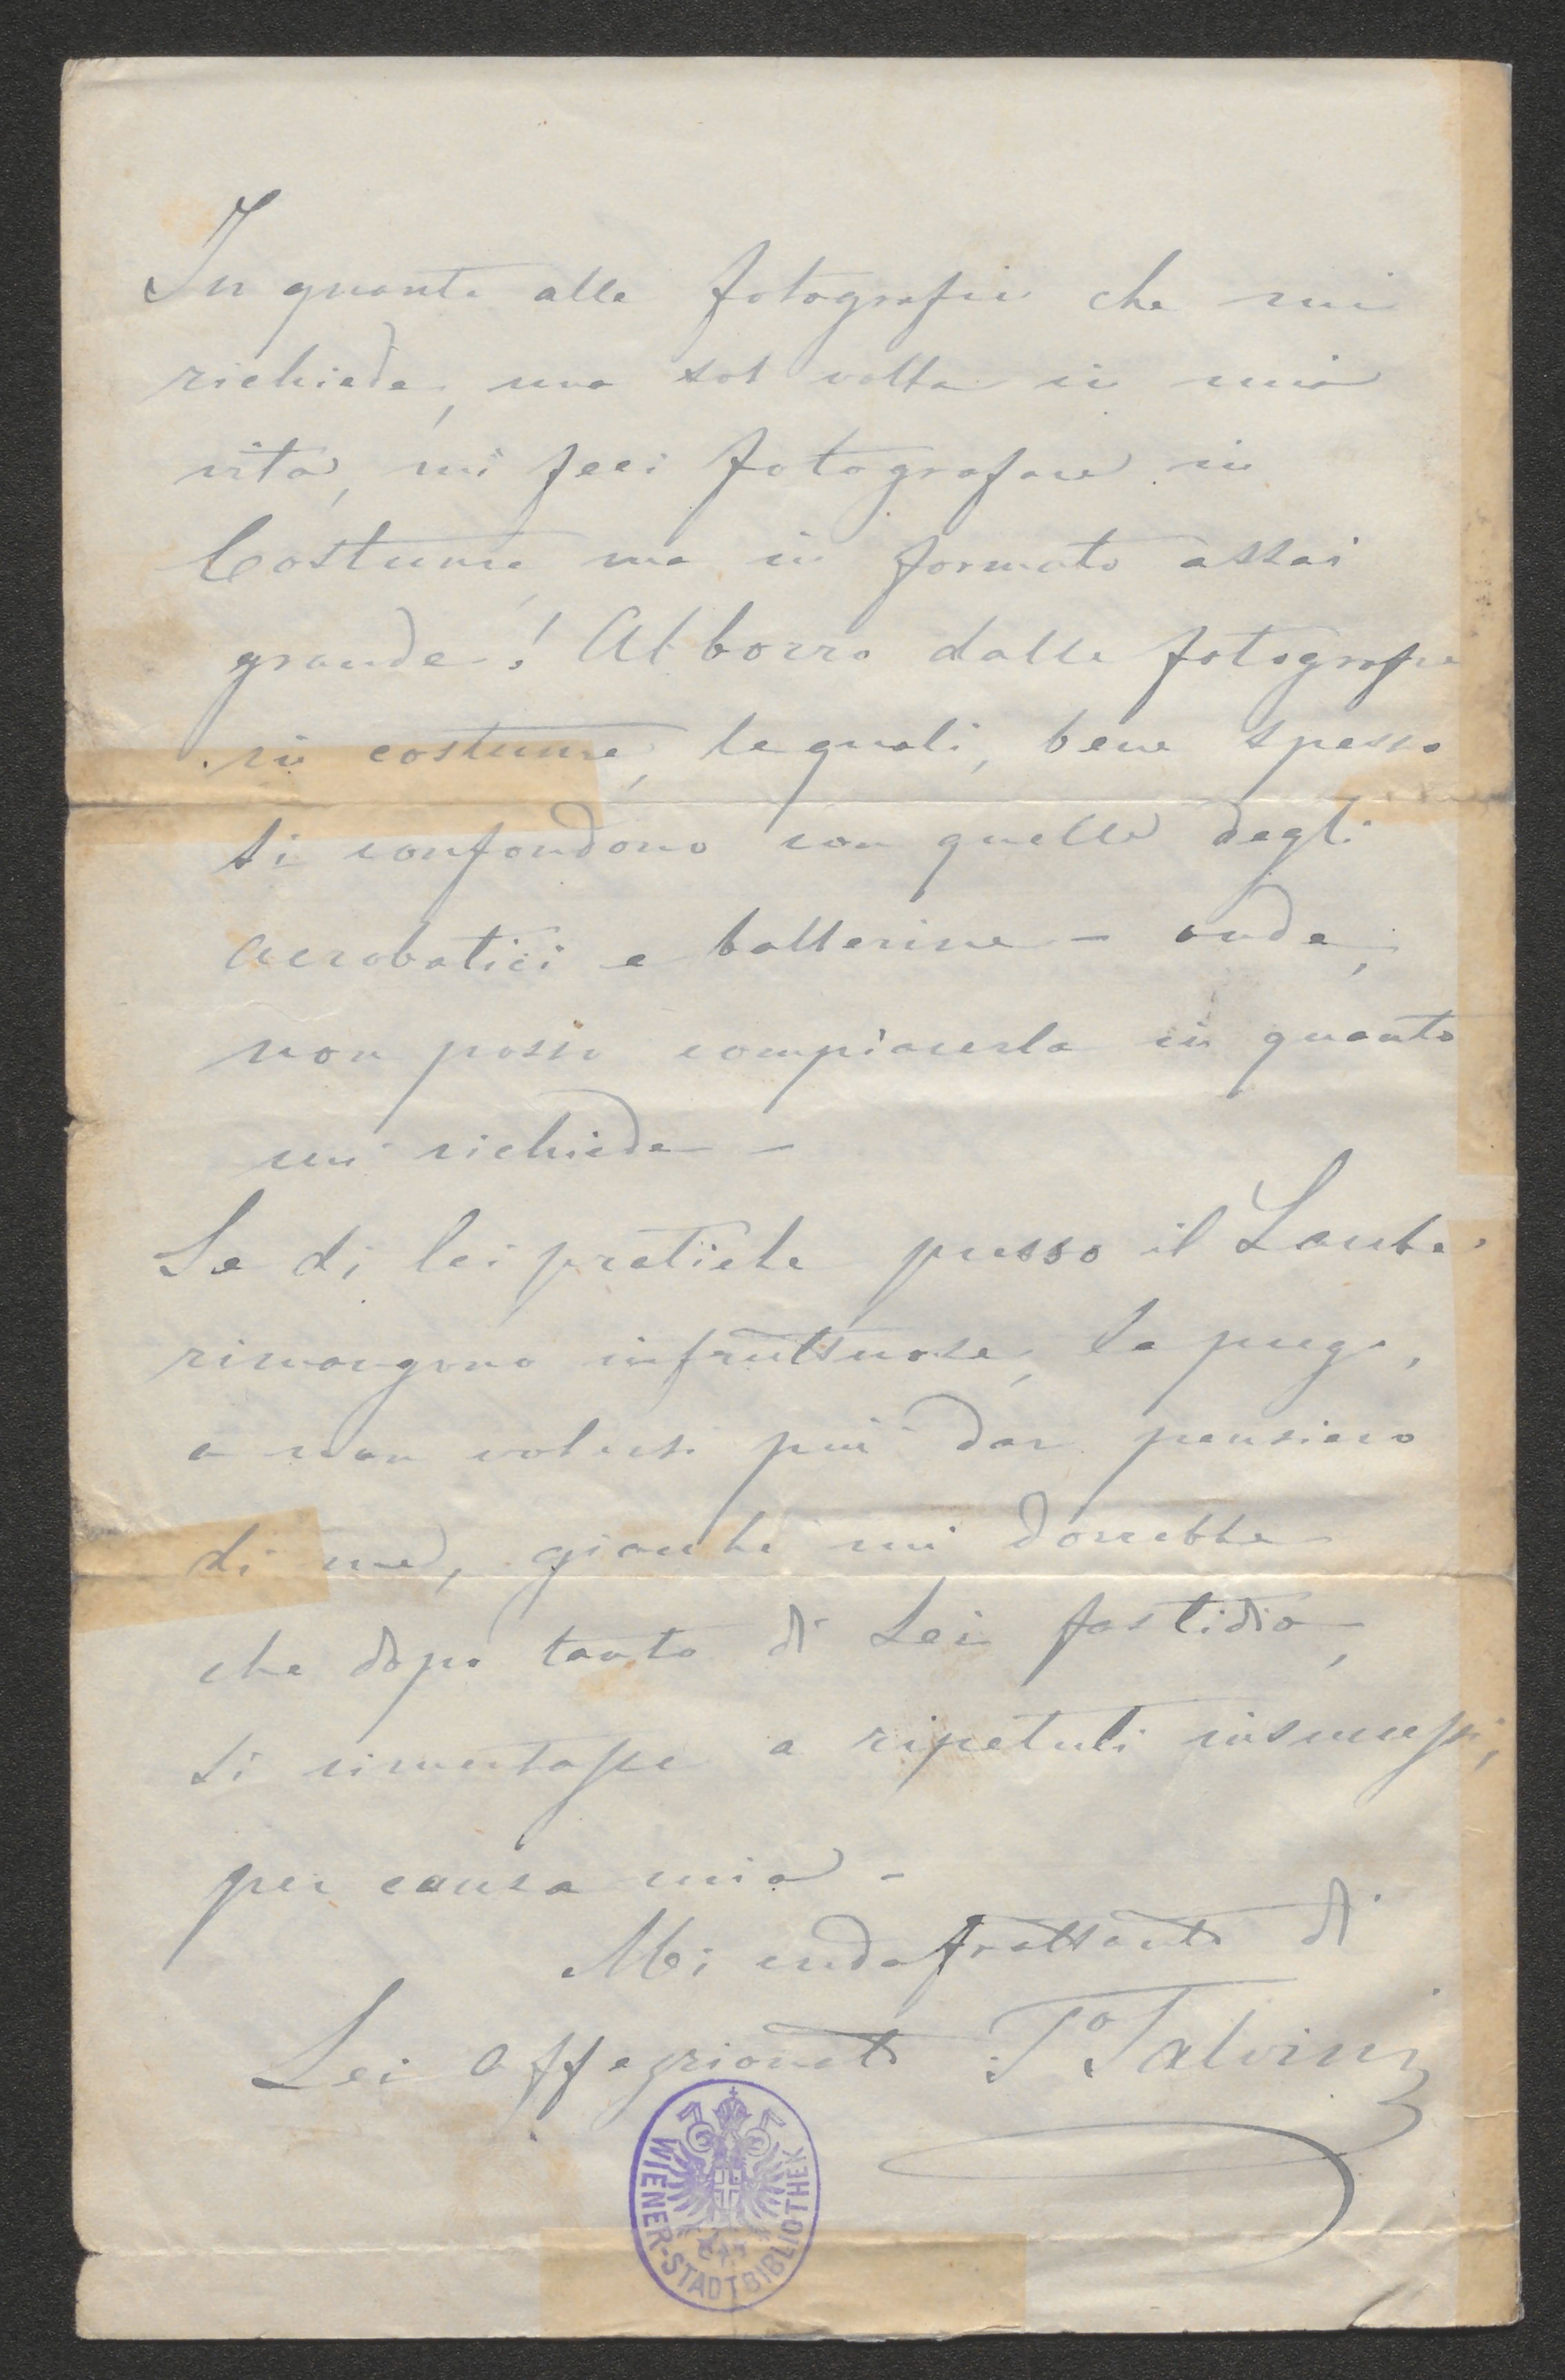 In quanto alle fotografie che mi
richiede, una sol volta in mia
vita, mi feci fotografare in
Costume, ma in formato assai
grande! Abborro dalle fotografie
in costume, le quali, bene spesso
si confondono con quelle degli
acrobatici e ballerine – onde,
non posso compiacerla in quanto
mi richiede –
Le di lei pratiche presso il Laube
rimangono infruttuose, la prego,
a non volersi più dar pensiero
di me, giacche mi dorrebbe
che dopo tanto di Lei fastidio,
si cimentasse a ripetuti insuccessi,
per causa mia –
Mi creda frattanto di
Lei affezionato T. Salvini
WIENER-STADTBIBLIOTHEK